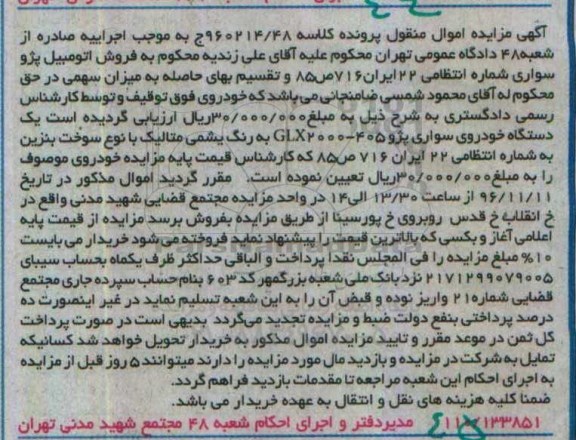 آگهی مزایده اموال منقول پرونده کلاسه ۹۶۰۲۱۴/۴۸ج به موجب اجراییه صادره از
شعبه۴۸ دادگاه عمومی تهران محکوم علیه آقای علی زندیه محکوم به فروش اتومبیل پژو
سواری شماره انتظامی ۲۲ایران۷۱۶ص۸۵ و تقسیم بهای حاصله به میزان سهمی در حق
محکوم له آقای محمود شمسی ضامنجانی می باشد که خودروی فوق توقیف و توسط کارشناس
رسمی دادگستری به شرح ذیل به مبلغ۳۰/۰۰۰/۰۰۰ریال ارزیابی گردیده است یک
دستگاه خودروی سواری پژو ۴۰۵-GLX۲۰۰۰ به رنگ یشمی متالیک با نوع سوخت بنزین
به شماره انتظامی ۲۲ ایران ۷۱۶ ص۸۵ که کارشناس قیمت پایه مزایده خودروی موصوف
را به مبلغ۳۰/۰۰۰/۰۰۰ریال تعیین نموده است. مقرر گردید اموال مذکور در تاریخ
۹۶/۱۱/۱۱ از ساعت ۱۳/۳۰ الی۱۴ در واحد مزایده مجتمع قضایی شهید مدنی واقع در
خ انقلاب خ قدس روبروی خ پورسینا از طریق مزایده بفروش برسد مزایده از قیمت پایه
اعلامی آغاز و بکسی که بالاترین قیمت را پیشنهاد نماید فروخته می شود خریدار می بایست
۱۰% مبلغ مزایده را فی المجلس نقدا پرداخت و الباقی حداکثر ظرف یکماه بحساب سیبای
۲۱۷۱۲۹۹۰۷۹۰۰۵ نزد بانک ملی شعبه بزرگمهر کد ۶۰۳ بنام حساب سپرده جاری مجتمع
قضایی شماره۲۱ واریز نوده و قبض آن را به این شعبه تسلیم نماید در غیر اینصورت ده
درصد پرداختی بنفع دولت ضبط و مزایده تجدید می گردد بدیهی است در صورت پرداخت
کل ثمن در موعد مقرر و تایید مزایده اموال مذکور به خریدار تحویل خواهد شد کسانیکه
تمایل به شرکت در مزایده و بازدید مال مورد مزایده را دارند میتوانند۵ روز قبل از مزایده
به اجرای احکام این شعبه مراجعه تا مقدمات بازدید فراهم گردد.
ضمنا کلیه هزینه های نقل و انتقال به عهده خریدار می باشد.
مدیردفتر و اجرای احکام شعبه ۴۸ مجتمع شهید مدنی تهران